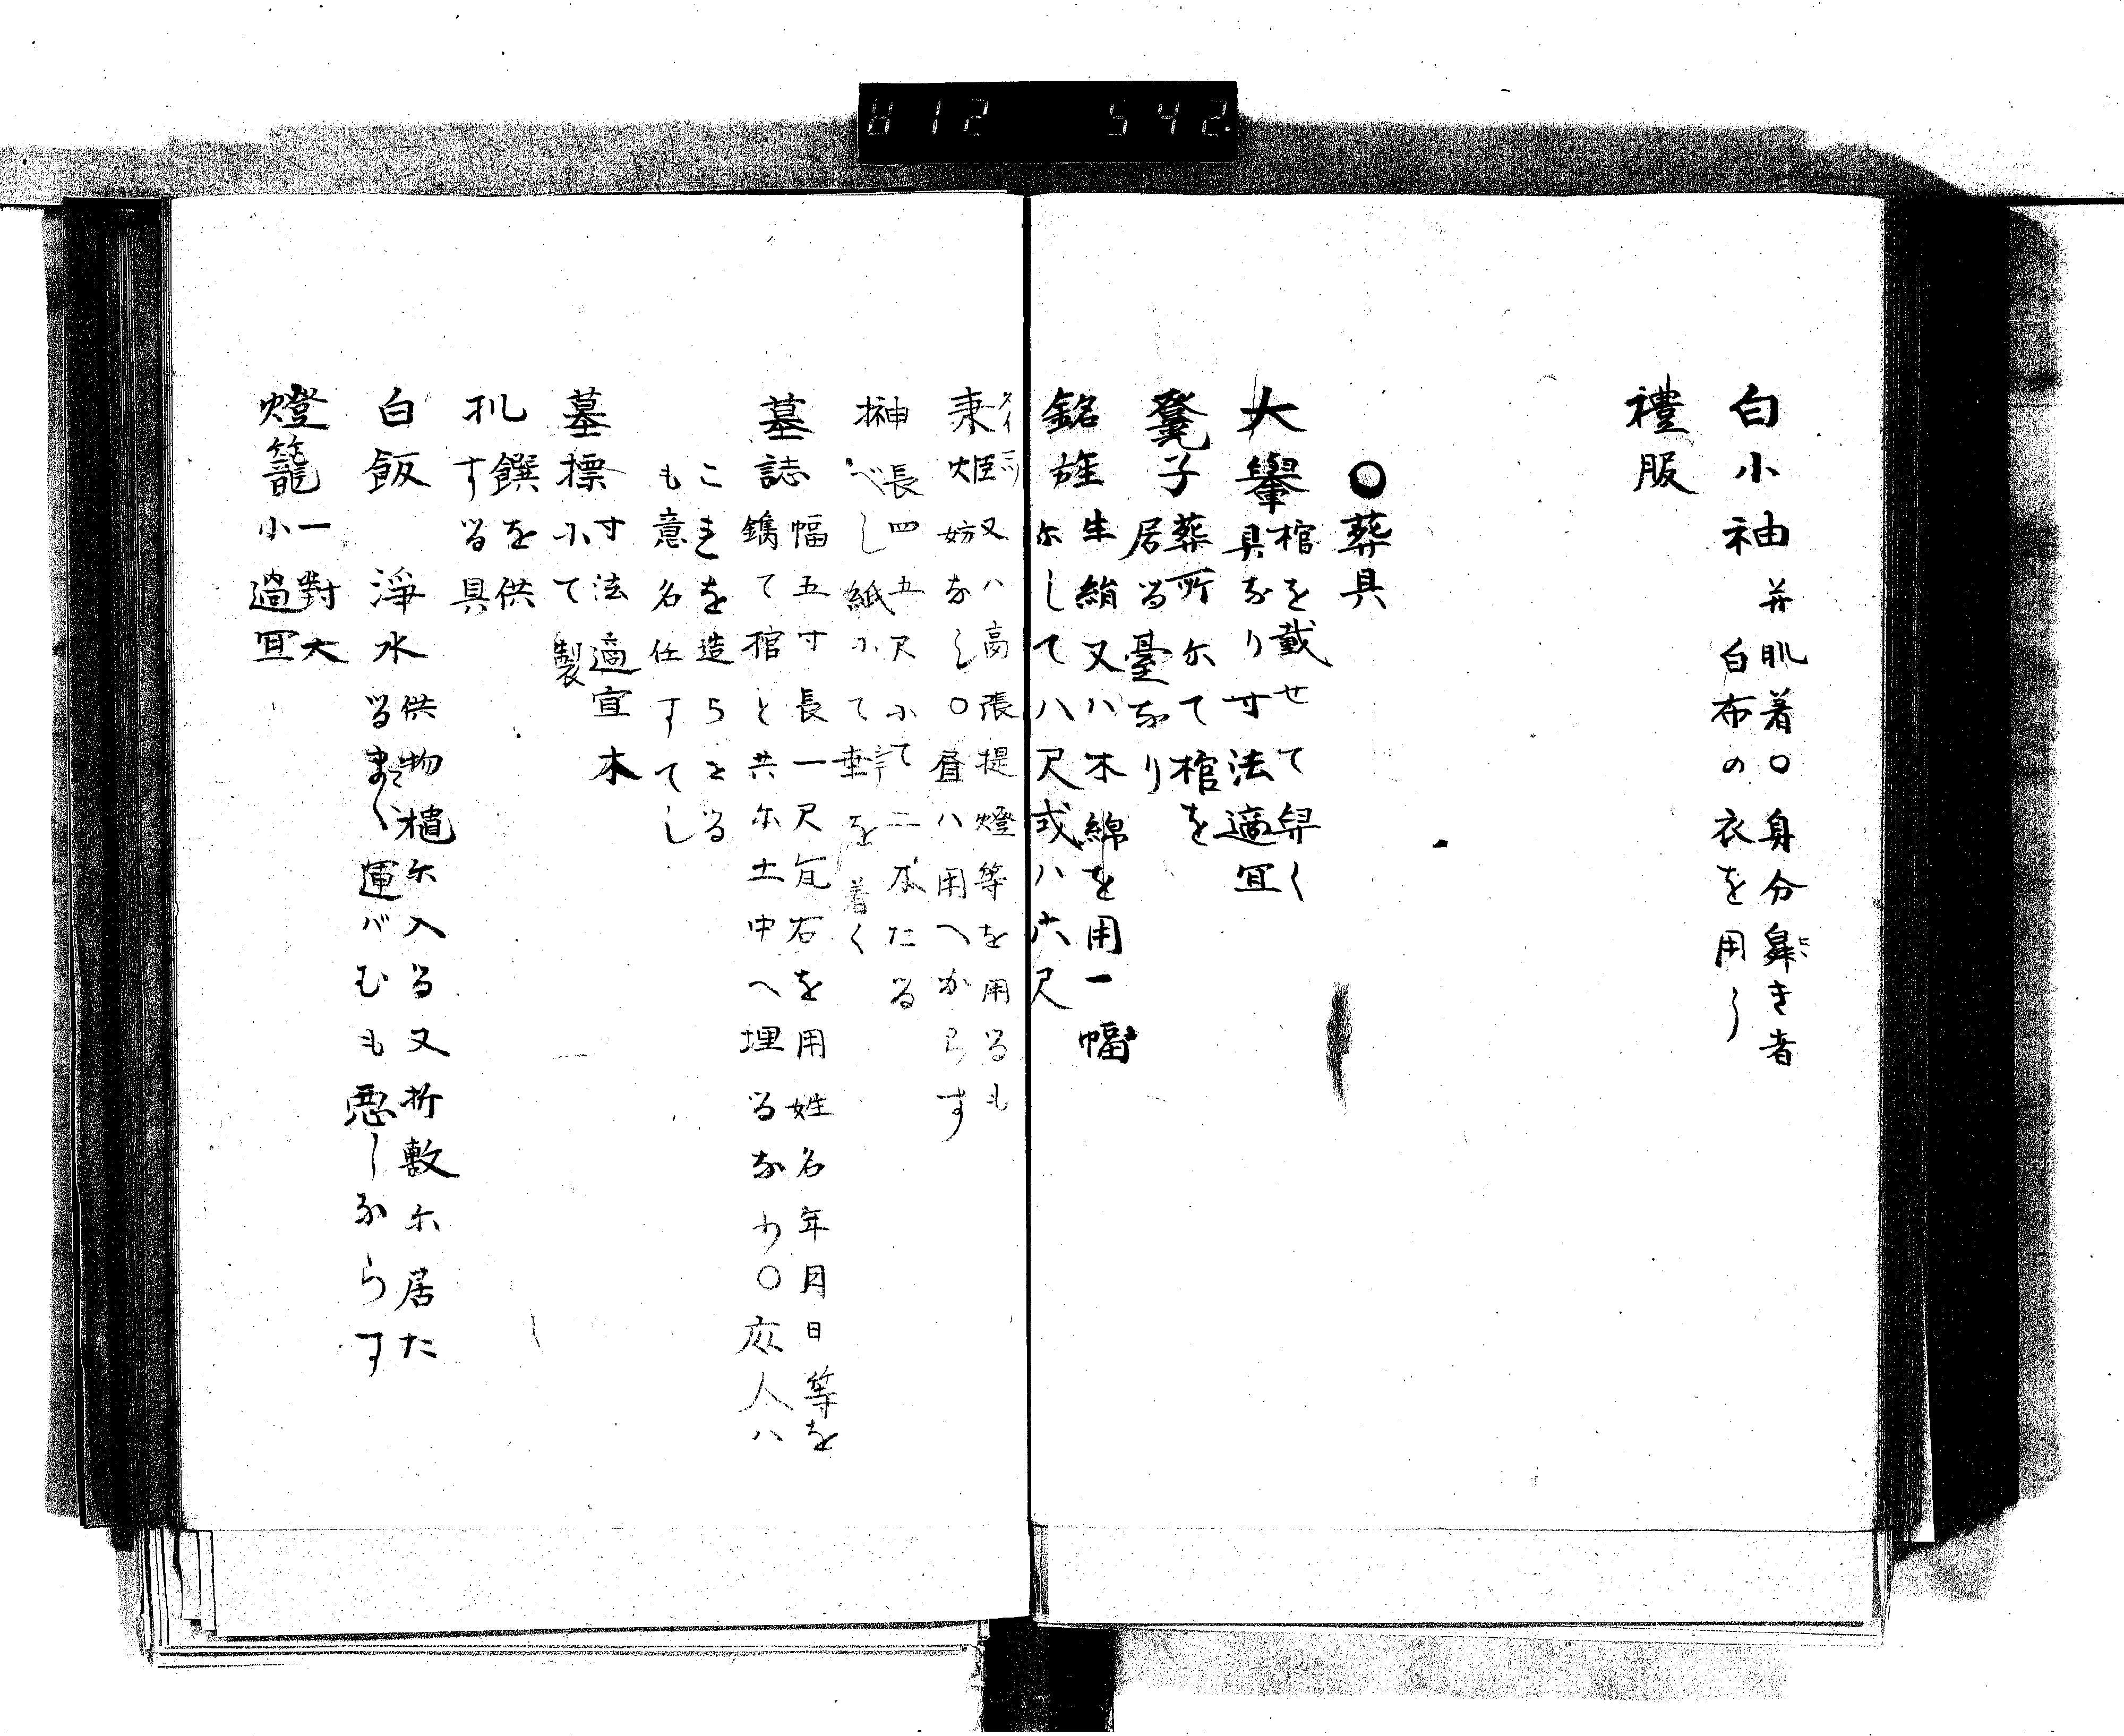 812 542.
白小袖 并肌着〇身分卑き者
白布の衣を用う
禮服
〇葬具
大轝 棺を戴せて舁く
具なり寸法適宜
凳子 葬所尓て棺を
居る臺なり
銘旌 生絹又ハ木綿を用一幅
尓して八尺或ハ六尺
タイマツ
秉炬 又ハ高張提燈等を用るも
妨なし〇昼ハ用へからす
榊 長四五尺小て二本たる
べし紙小て垂を着く
墓誌 幅五寸長一尺瓦石を用姓名年月日等を
鐫て棺と共尓土中へ埋るなり〇庶人ハ
これを造らさる
も意名任すてし
墓標 寸法適宜木
小て製
机 饌を供
する具
白飯 淨水 供物櫃尓入る又折敷尓居た
るまゝ運バむも悪しならす
燈籠 一對大
小適宜